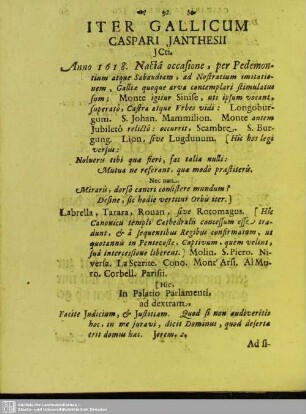 92.
ITER GALLICUM
CASPARI JANTHESII
JCti.
Anno 1618. Nactâ occasione, per Pedemon-
tium atque Sabaudiam, ad Nostratium imitatio-
nem, Galliæ quoque arva contemplari stimulatus
sum; Monte igitur Sinise, uti ipsum vocant,
superatô, Castra atque Urbes vidi: Longobur-
gum. S. Johan. Mammilion. Monte autem
Jubiletô relictô: occurrit, Scambre, S. Bur-
gung. Lion, sive Lugdunum. [Hic hos legi
versus:
Nolueris tibi qua fieri, fac talia nulli:
Mutua ne referant, qua modo præstiteris.
Nec non.
Miraris, dorsô cancri consistere mundum?
Desine, sic hodie vertitur Orbis iter.]
Labrella, Tarara, Rouan, sive Rotomagus. [Hîc
Canonicis templi Cathedralis concessum esse tra-
dunt, & à sequentibus Regibus confirmatum, ut
quotannis in Pentecoste, Captivum, quem velint,
suâ intercessione liberent.] Molin. S. Piero. Ni-
versa. La Scarite. Cono. Mont' Arsi. Al Mu-
ro. Corbell. Parisii.
[Hîc:
In Palatio Parlamenti,
ad dextram.
Facite Judicium, & Justitiam. Quod si non audiveritis
hoc: in me juravi, dicit Dominus, quod deserta
erit domus hæc. Jerem. 2.
Ad si-